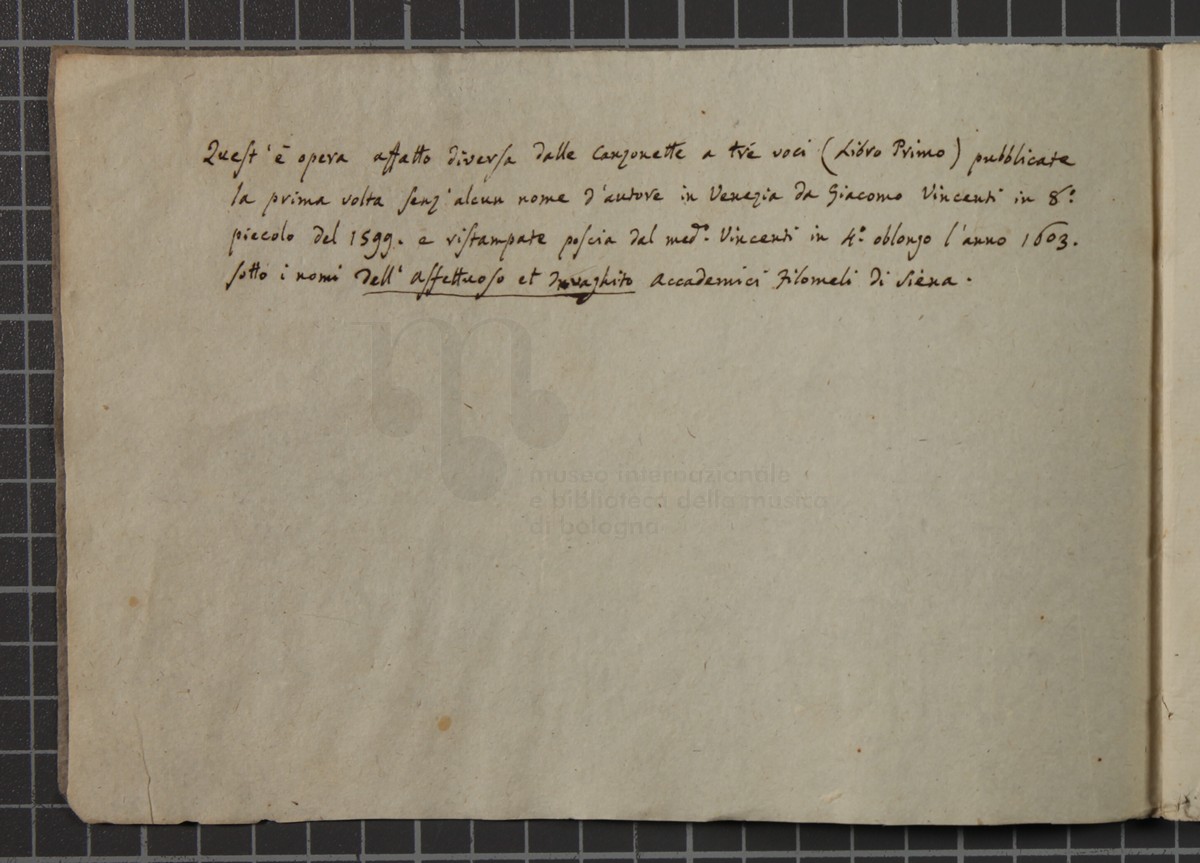 Quest'è opera affatto diversa dalle Canzonette a trè voci (Libro Primo) pubblicate
la prima volta senz'alcun nome d'autore in Venezia da Giacomo Vincenti in 8.º
piccolo del 1599. e ristampate poscia dal med.º Vincenti in 4.º oblongo l'anno 1603.
sotto i nomi dell'Affettuoso et Invaghito Accademici Filomeli di Siena.
museo internazionale
e biblioteca della musica
di bologna